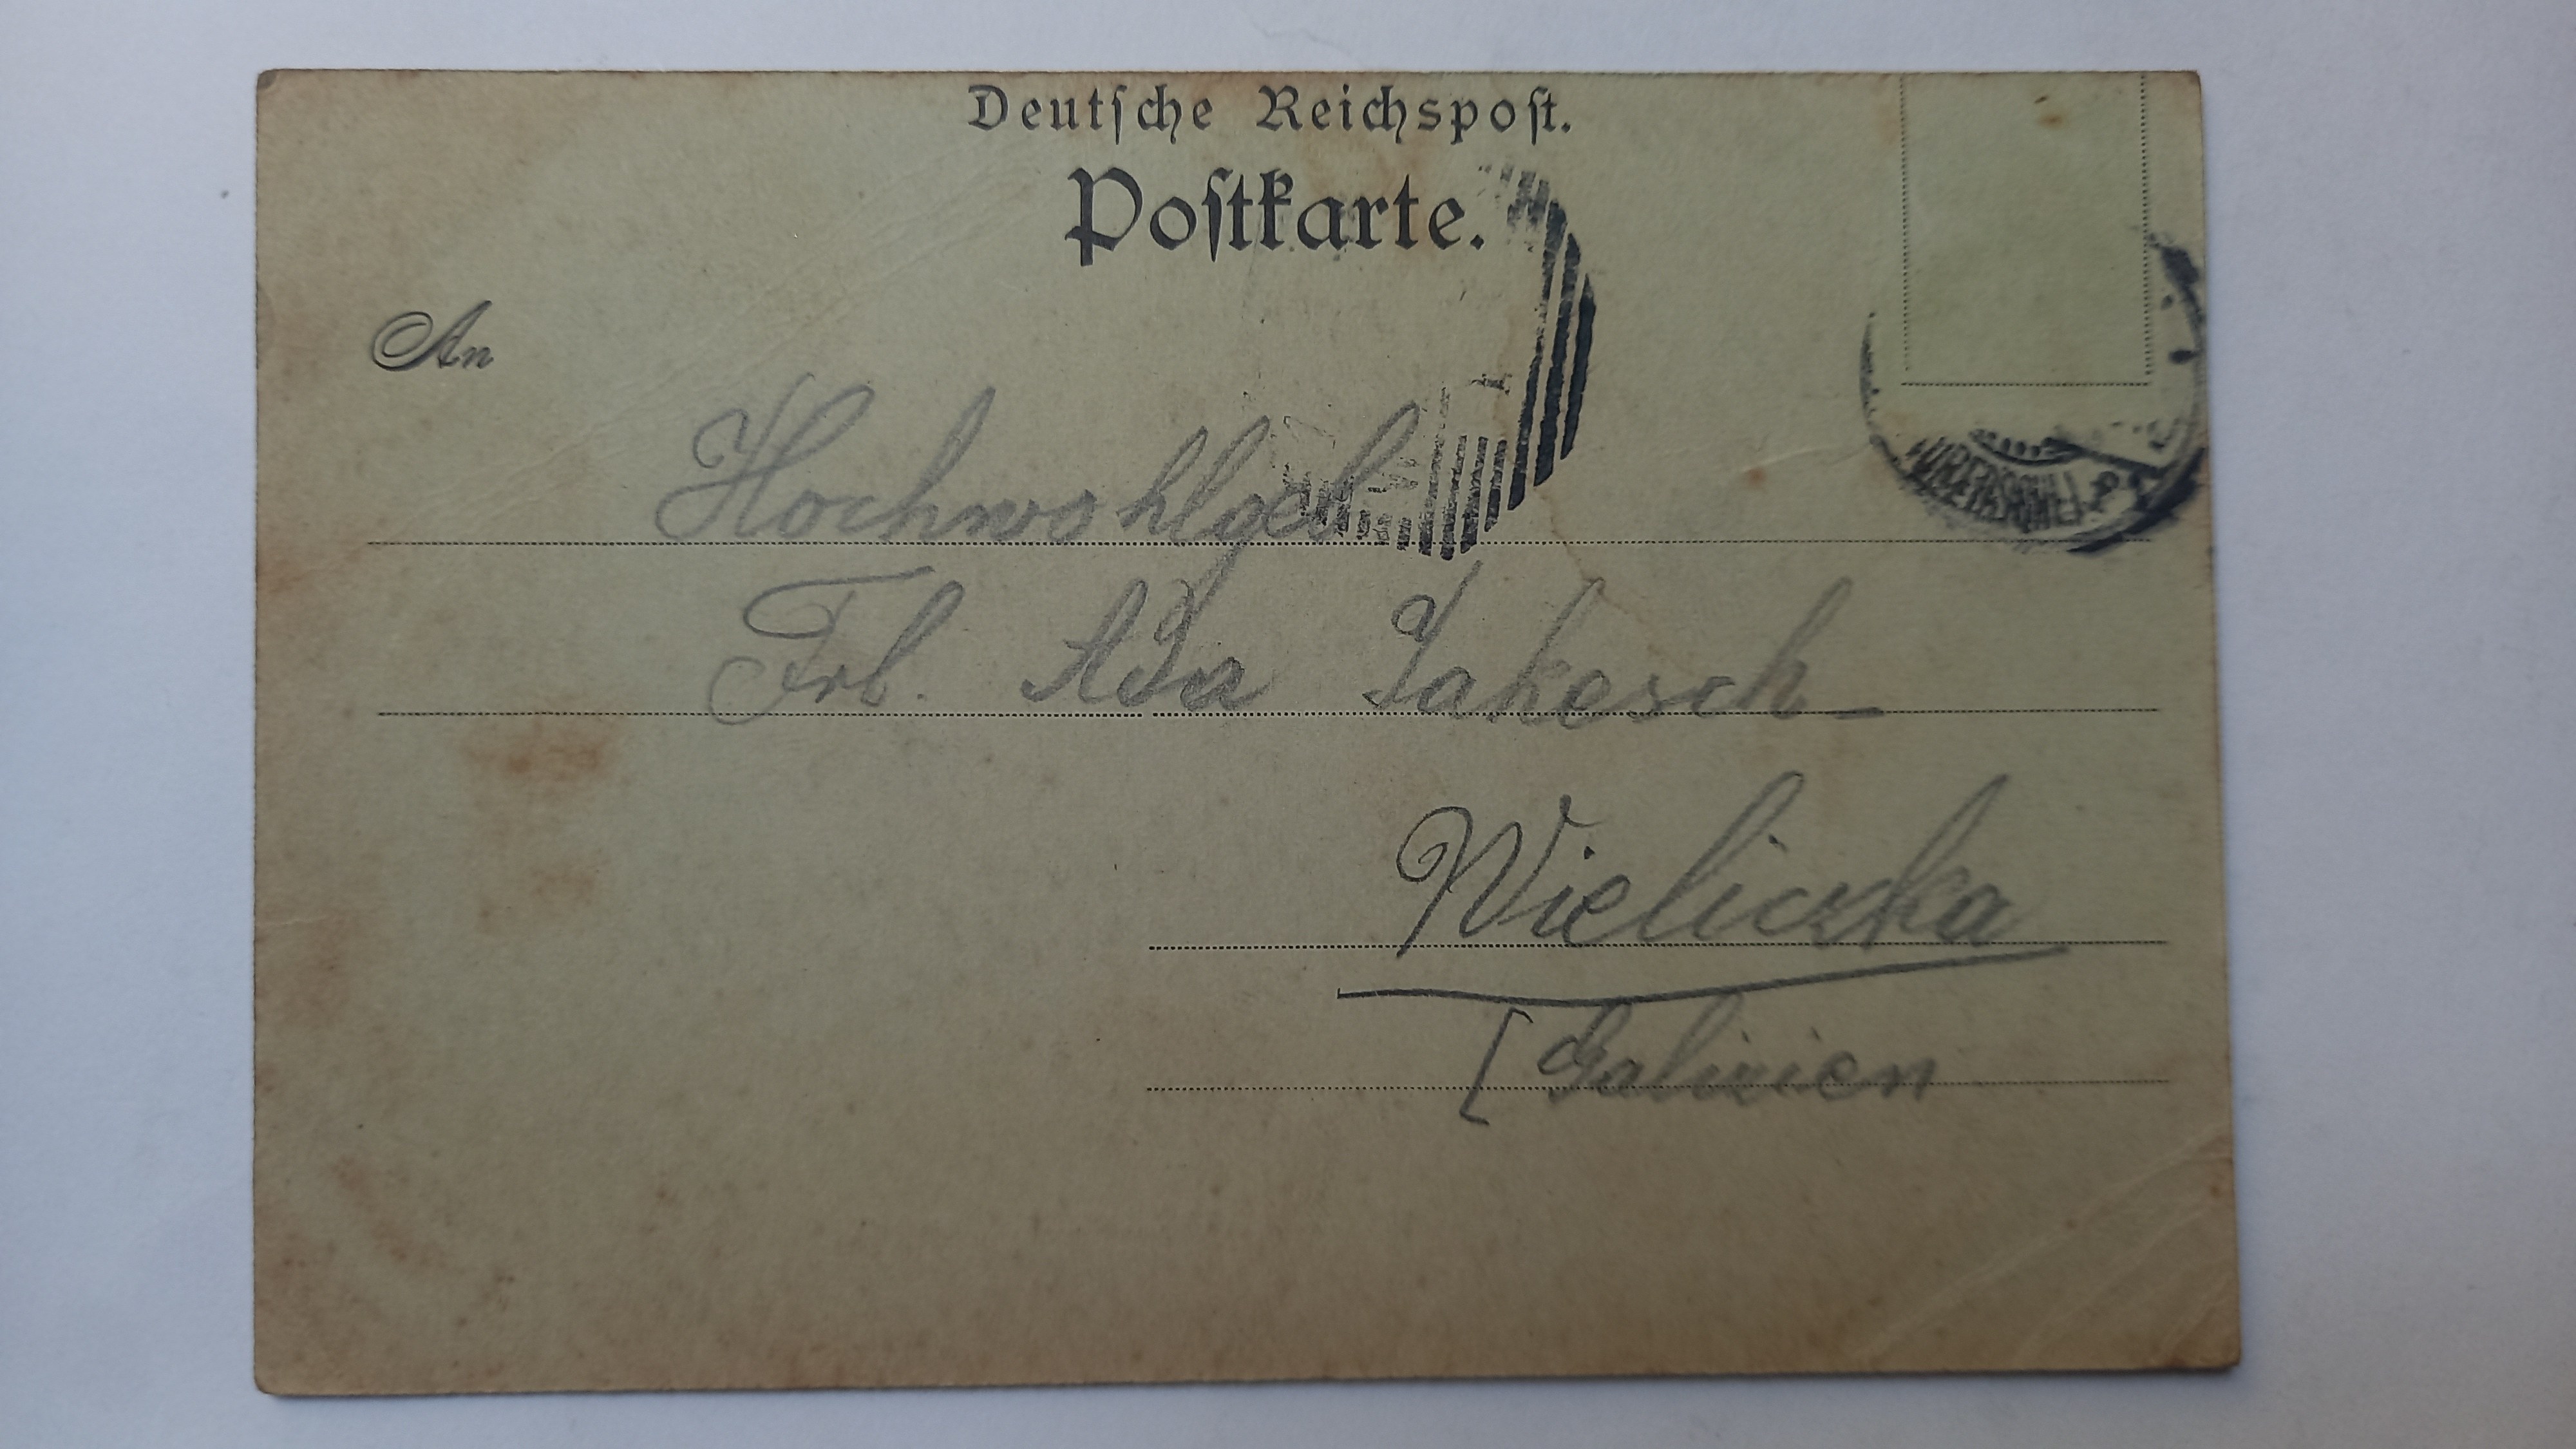 Deutsche Reichspost.
Postkarte.
An
Hochwohlgeb
Frl. Ada Jakesch
Wieliczka
[Galizien